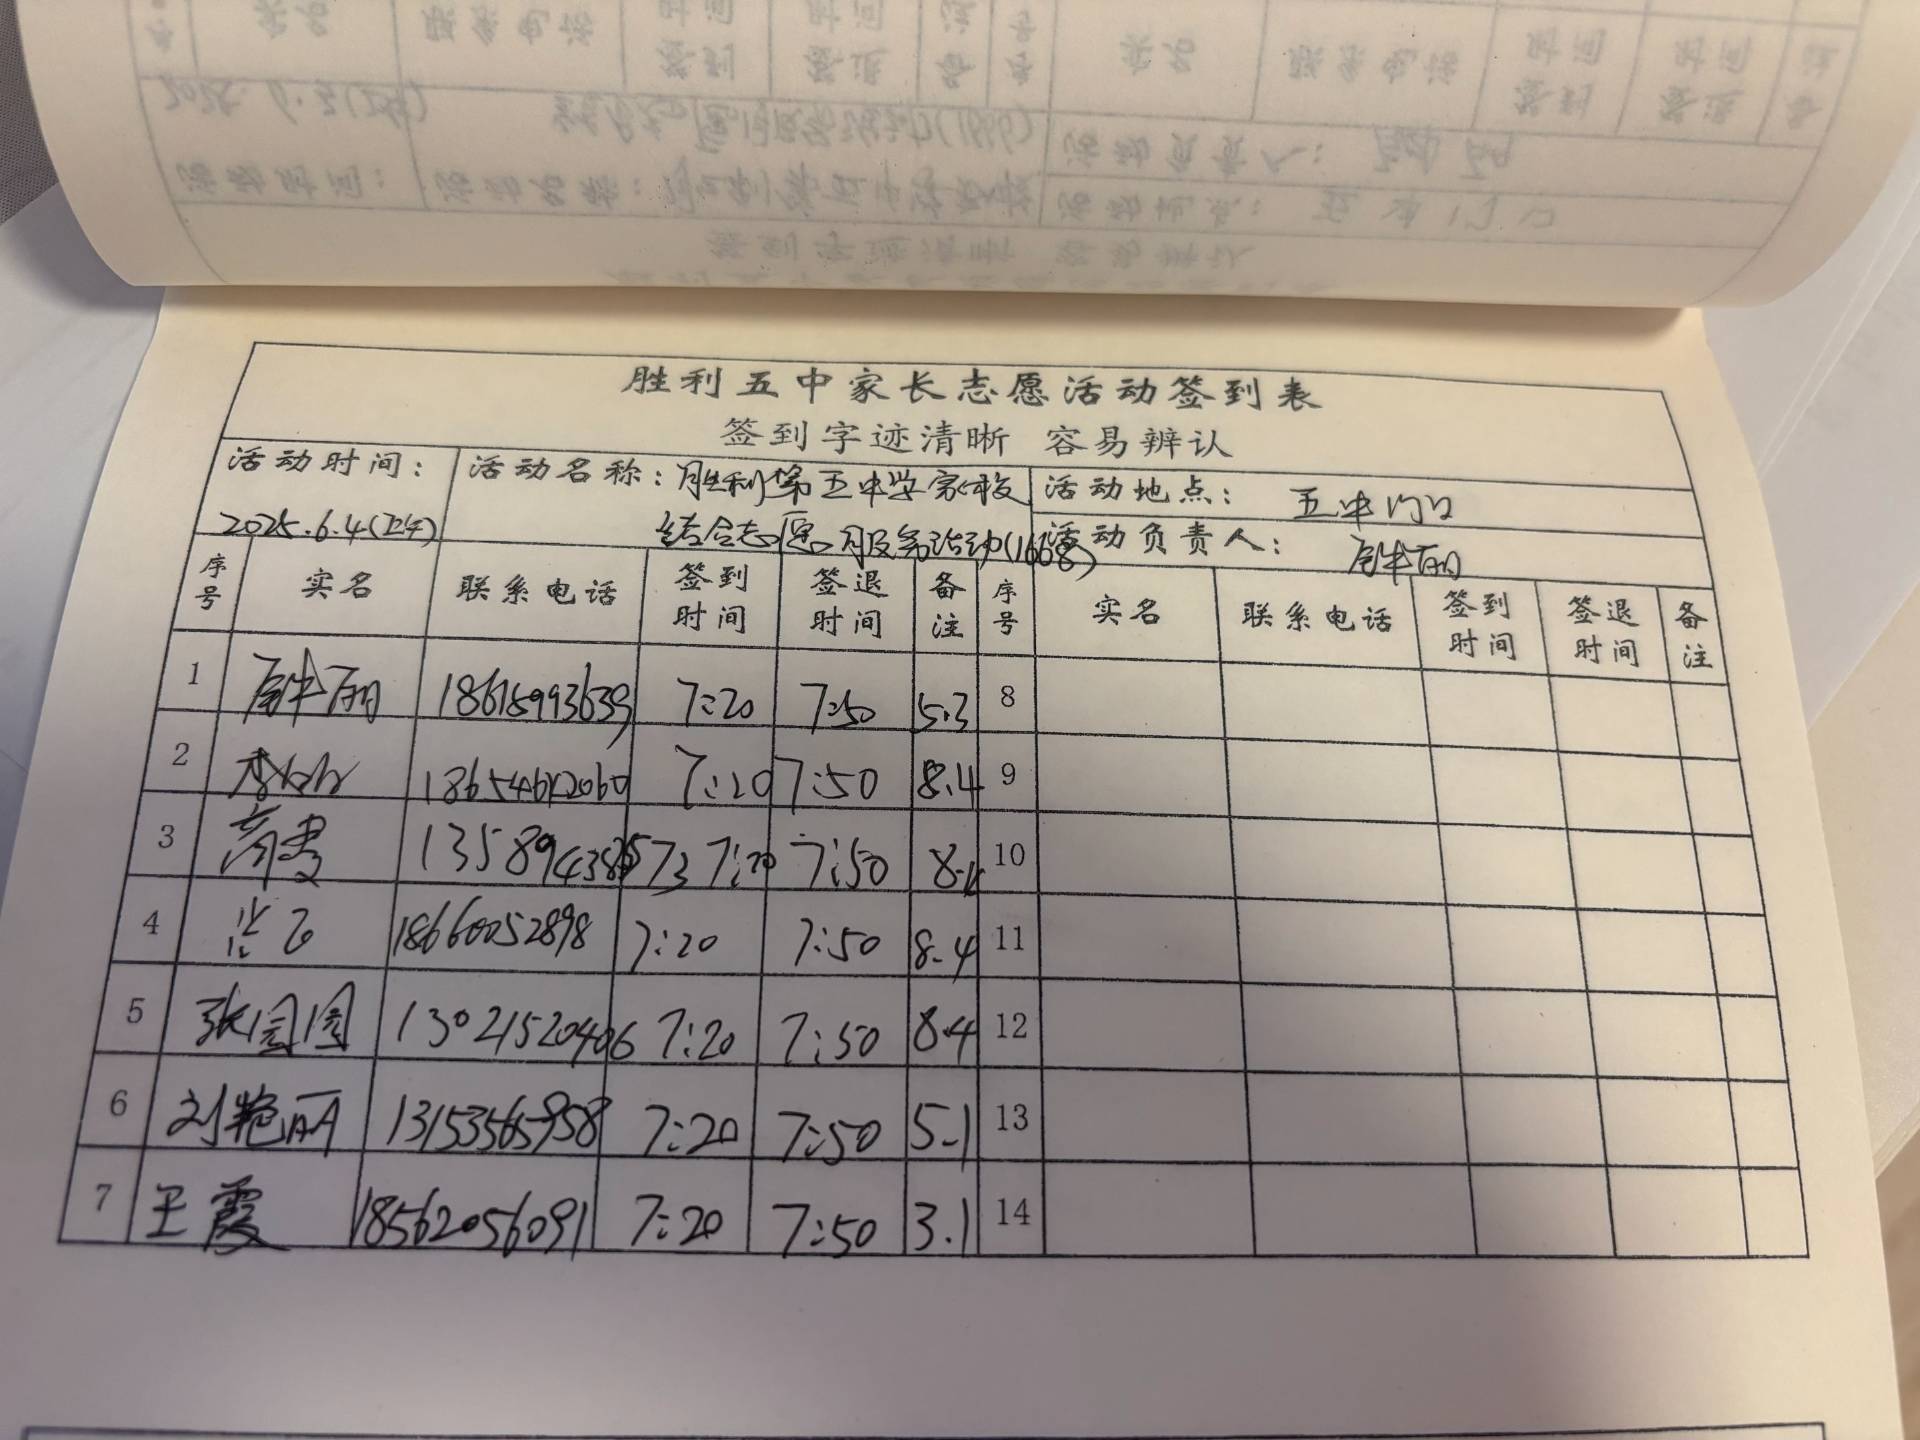 胜利五中家长志愿活动签到表
签到字迹清晰 容易辨认
活动时间: 2025.6.4(上午)
活动名称: 胜利第五中学家校
结合志愿服务活动(1668)
活动地点: 五中门口
活动负责人:
序号 实名 联系电话 签到时间 签退时间 备注 序号 实名 联系电话 签到时间 签退时间 备注
1 18615993639 7:20 7:50 5.3 8
2 18654612060 7:20 7:50 8.4 9
3 7:20 7:50 8.4 10
4 18660052898 7:20 7:50 8.4 11
5 张园园 13021520406 7:20 7:50 8.4 12
6 刘艳丽 13153565958 7:20 7:50 5.1 13
7 王霞 18562056091 7:20 7:50 3.1 14